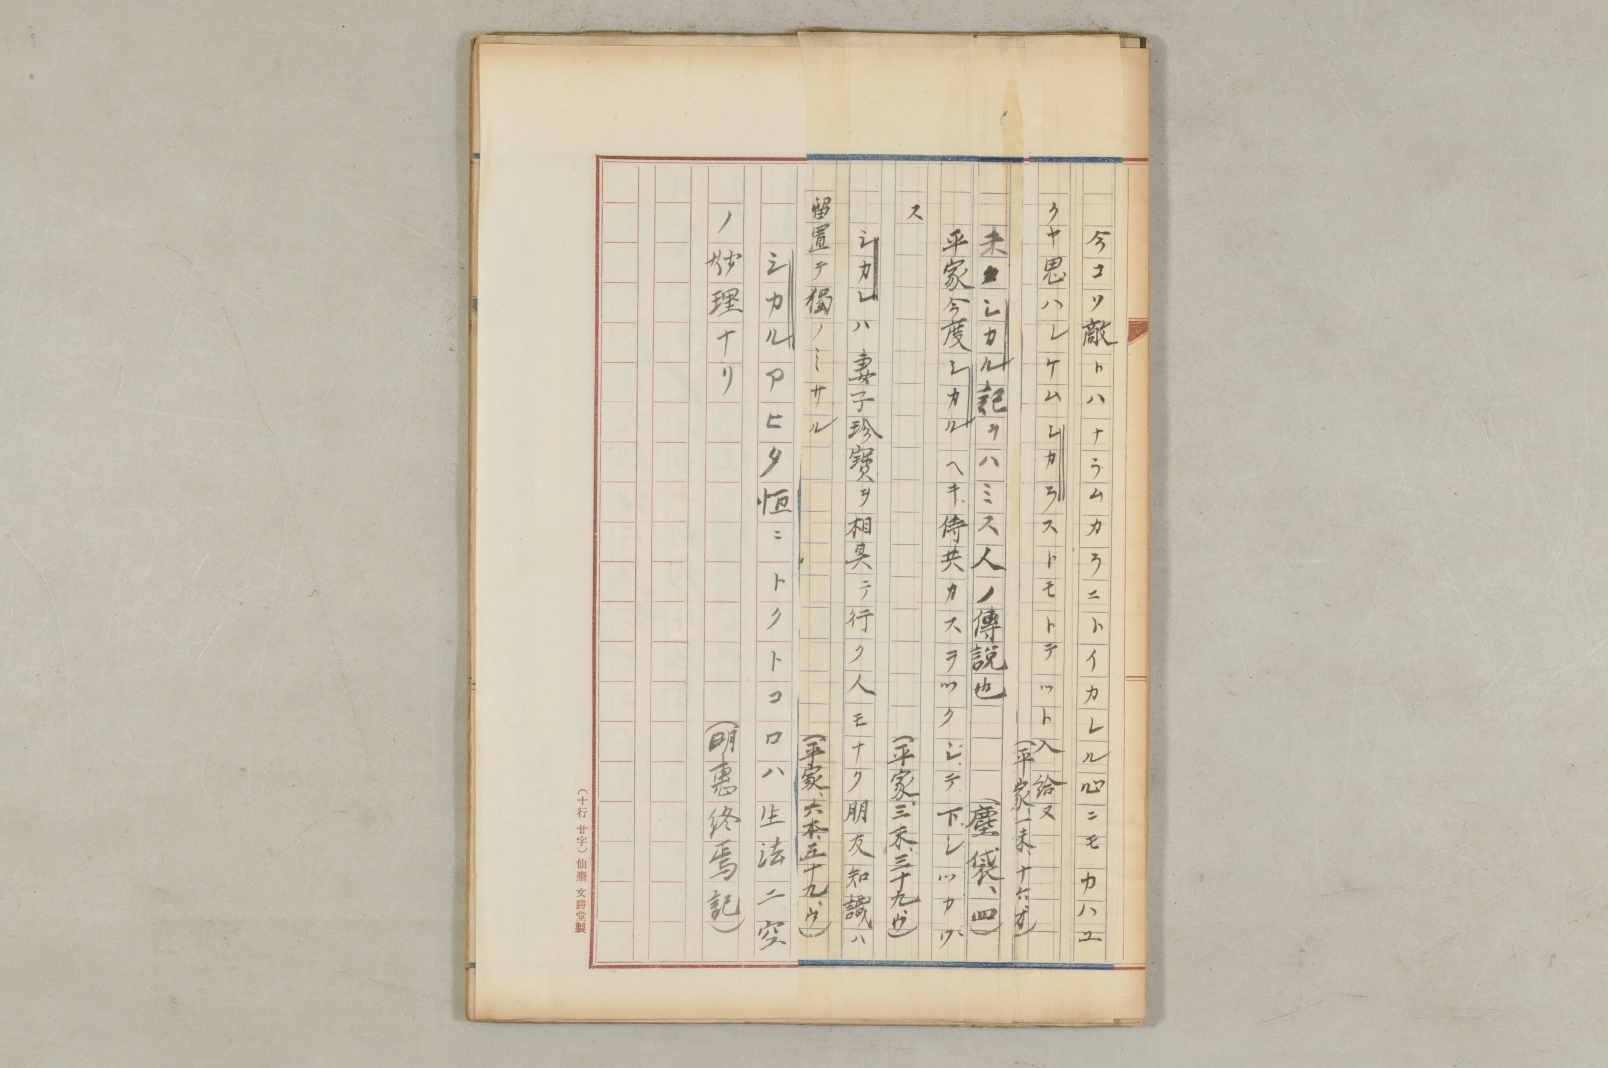 今コソ敵トハナラムカラニトイカレル心ニモカハユ
クヤ思ハレケムシカラストモトテツト入給又
(平家、一末、十六オ)
未タシカル記ヲハミス人ノ傳説也
(塵袋、四)
平家今度シカルヘキ侍共カスヲツクシテ下シツカワ
ス
(平家、三末、三十九ウ)
シカレハ妻子珍寶ヲ相具テ行ク人モナク朋友知識ハ
留置テ獨ノミサル
(平家、六本、五十九、ウ)
シカルアヒタ恒ニトクトコロハ生法ニ空
ノ妙理ナリ
(明惠終焉記)
(十行廿字) 仙臺 文勝堂製